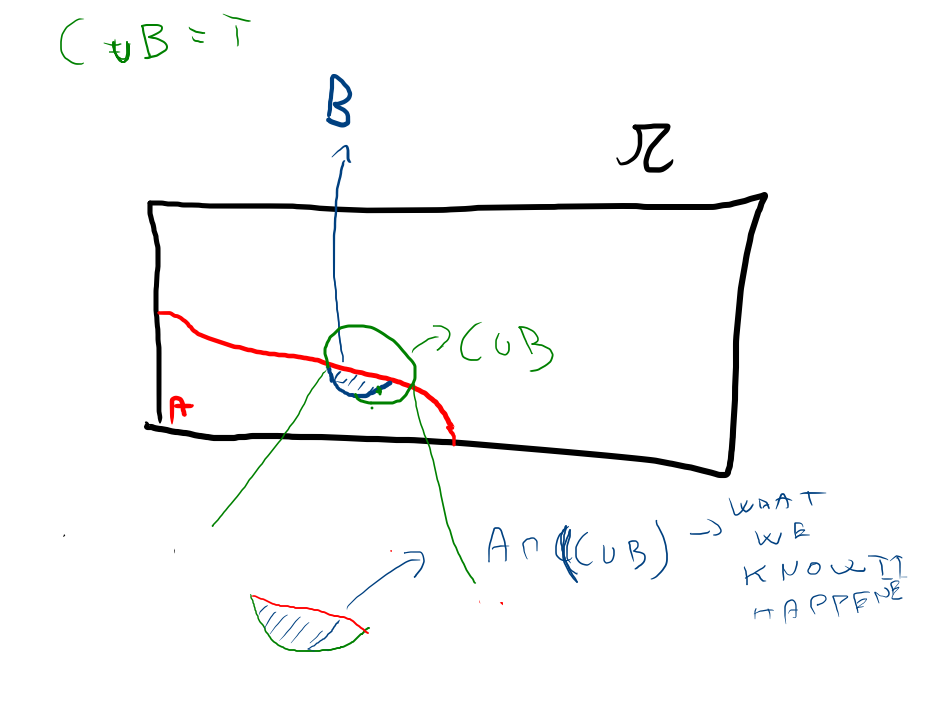 C ∪ B = T
B
Ω
→ C ∪ B
A
A ∩ (C ∪ B) → WHAT
WE
KNOW IT
HAPPENE